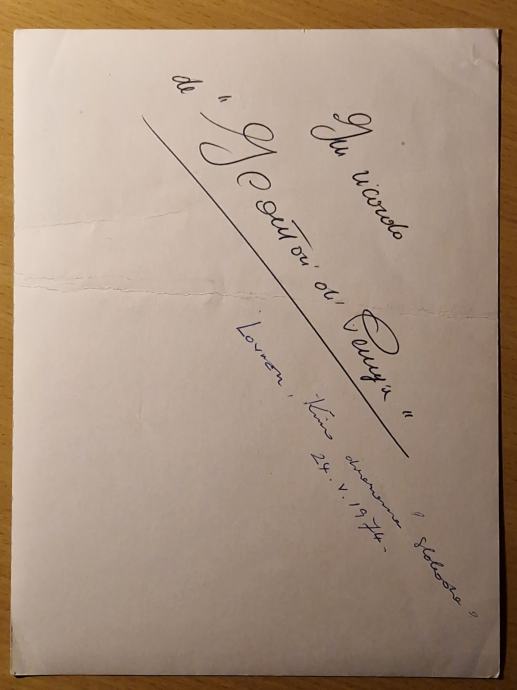 In ricordo
de "I Cantori di Perugia"
Lovran, Kino dvorana "Sloboda"
24. V. 1974.